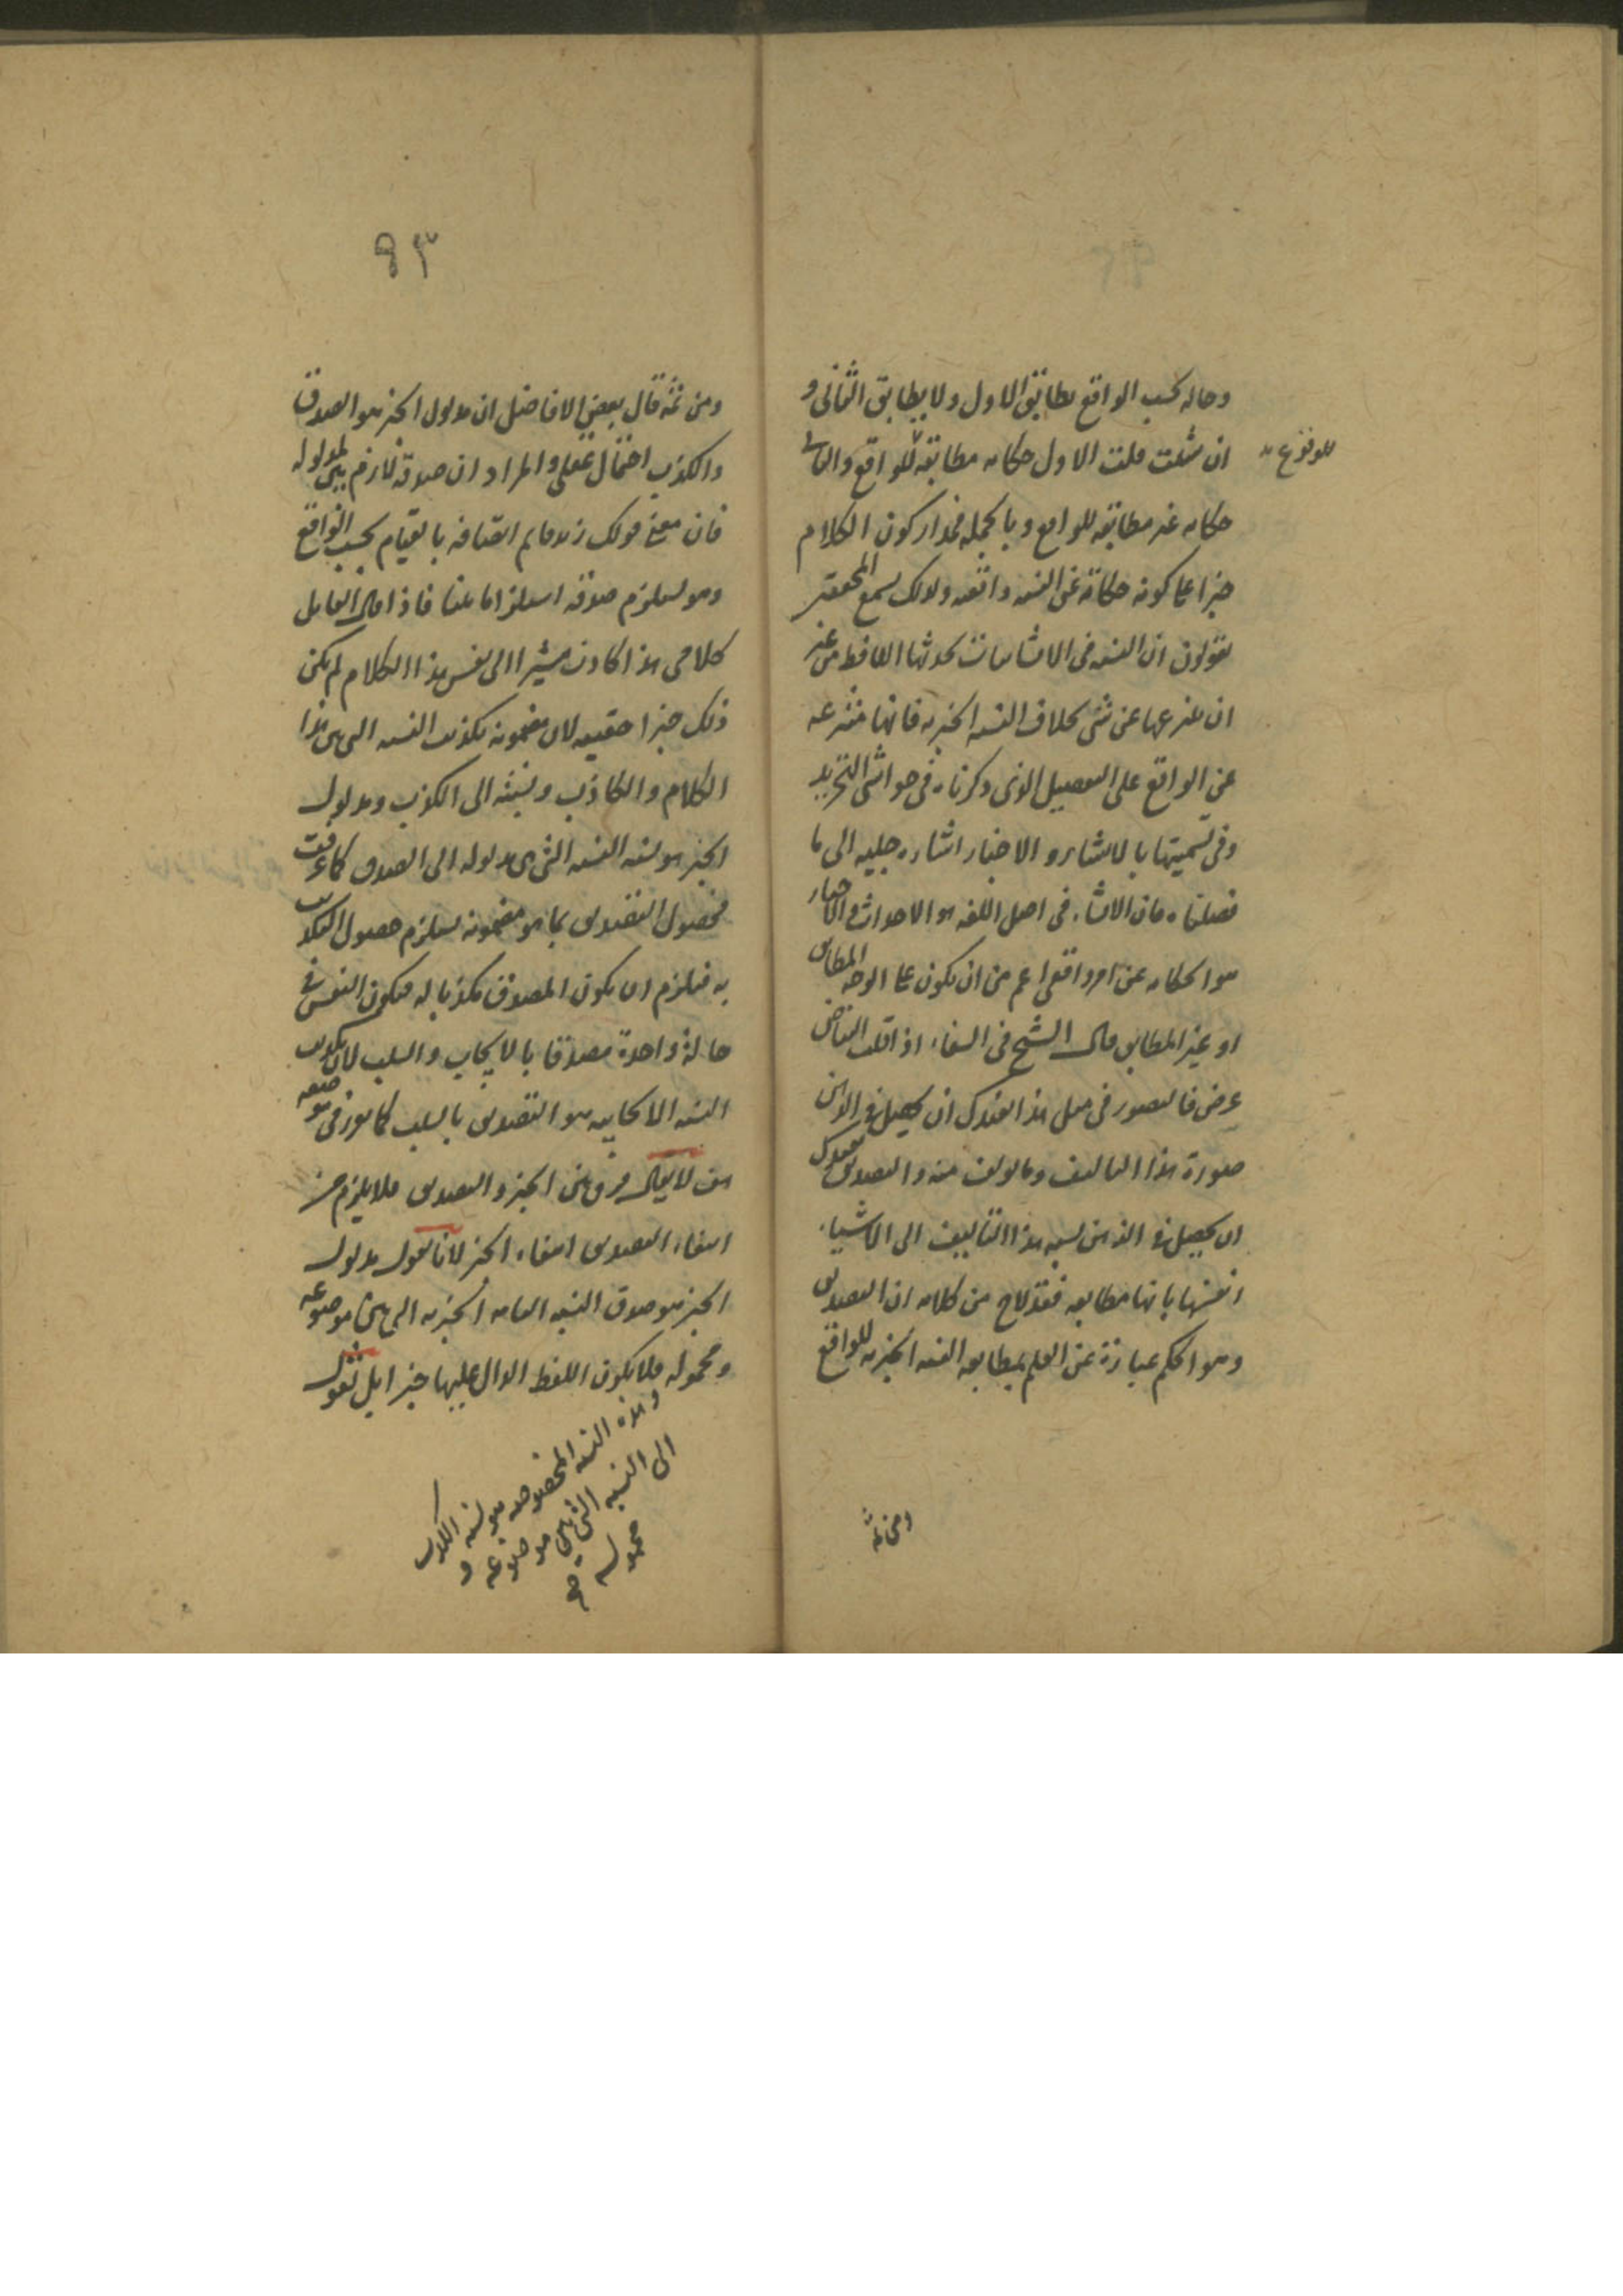 وحاله بحسب الواقع يطابق الاول ولا يطابق الثانى و
ان شئت قلت الاول حكاية مطابقة للواقع والثانى
للوقوع
حكاية غير مطابقة للواقع وبالجملة فمدار كون الكلام
خبرا على كونه حكاية عن النسبة واقعة ولذلك تسمع المحققين
يقولون ان النسبة فى الانشائيات يحدثها اللافظ من غير
ان ينتزعها عن شئ بخلاف النسبة الخبرية فانها منتزعة
عن الواقع على التفصيل الذى ذكرناه فى حواشى التجريد
وفى تسميتها بالانشاء والاخبار اشارة جلية الى ما
فصلناه فان الانشاء فى اصل اللغة هو الاحداث والاخبار
هو الحكاية عن امر واقعى اعم من ان يكون على الوجه المطابق
او غير المطابق قال الشيخ فى الشفاء اذا قلت البياض
عرض فالتصور فى مثل هذا يفيدك ان يحصل فى الذهن
صورة هذا التاليف وما يولف منه والتصديق يفيدك
ان يحصل فى الذهن نسبة هذا التاليف الى الاشياء
انفسها بانها مطابقة فقد لاح من كلامه ان التصديق
وهو الحكم عبارة عن العلم بمطابقة النسبة الخبرية للواقع
ومن ثمه
٩٣
ومن ثمه قال بعض الافاضل ان مدلول الخبر هو الصدق
والكذب احتمال عقلى والمراد ان صدقه لازم بين لمدلوله
فان معنى قولك زيد قايم اتصافه بالقيام بحسب الواقع
وهو يستلزم صدقه استلزاما بينا فاذا قال القايل
كلامى هذا كاذب مشيرا الى نفس هذا الكلام لم يكن
ذلك خبرا حقيقة لان مضمونه تكذيب النسبة التى هى هذا
الكلام والكاذب ونسبته الى الكذب ومدلول
الخبر هو نسبة النسبة التى هى مدلوله الى الصدق كما عرفت
فحصول التصديق بما هو مضمونه يستلزم حصول التكذيب
به فيلزم ان يكون المصدق مكذبا له فيكون النفس فى
حالة واحدة مصدقا بالايجاب والسلب لان تكذيب
النسبة الايجابية هو التصديق بالسلب كما تقرر فى موضعه
هف لا يقال فرق بين الخبر والتصديق فلا يلزم من
انتفاء التصديق انتفاء الخبر لانا نقول مدلول
الخبر هو صدق النسبة التامة الخبرية التى هى بين موضوعه
ومحموله فلا يكون اللفظ الدال عليها خبرا بل نقول
وهذه النسبة المخصوصة هو نسبة الكذب
الى النسبة التى هى موضوعه و
محموله صح